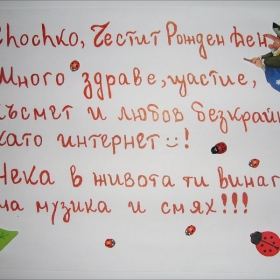 Chochko, Честит Рожден Ден
Много здраве, щастие,
късмет и любов безкрайн
като интернет :)!
Нека в живота ти винаг
има музика и смях!!!